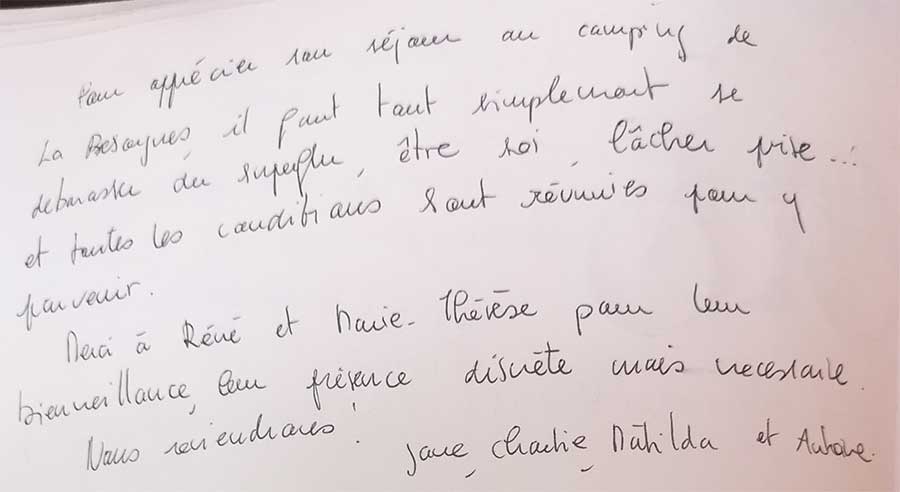 Pour apprécier son séjour au camping de
La Besagues, il faut tout simplement se
debarasser du superflu, être soi, lâcher prise...
et toutes les conditions sont réunies pour y
parvenir.
Merci à Réné et Marie-Thérèse pour leur
bienveillance, leur présence discrète mais necessaire.
Nous reviendrons!
Jane, Charlie, Mathilda et Antoine.